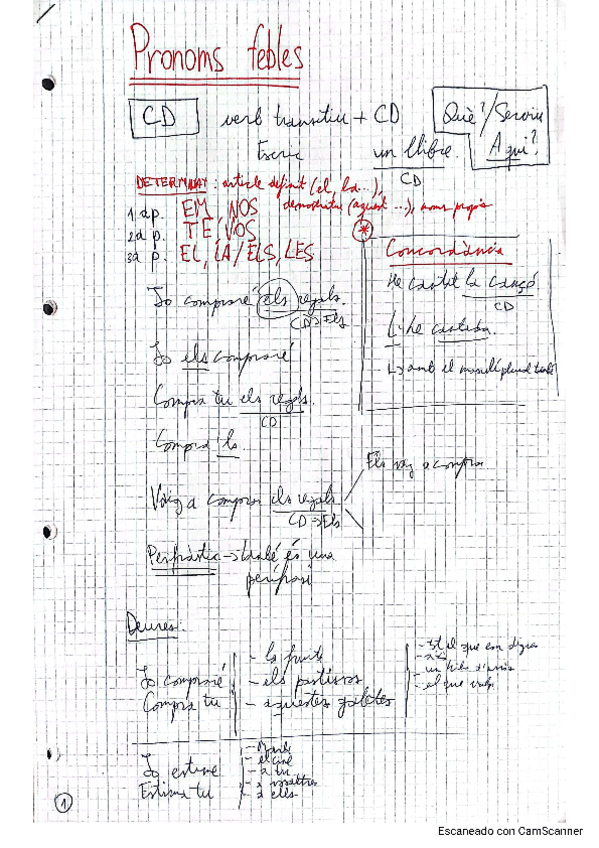 Pronoms febles
CD verb transitiu + CD Què?/Serviu
Escric un llibre. A qui?
CD
DETERMINAT: article definit (el, la...),
demostratiu (aquest ...), noms propis
1a p. EM, NOS
2a p. TE, VOS
3a p. EL, LA / ELS, LES
* Concordància
He cantat la cançó
CD
L'he cantada.
amb el masculí plural també
Jo compraré els regals.
CD→Els
Jo els compraré
Compra tu els regals.
CD
Compra'ls
Els vaig a comprar
Vaig a comprar els regals
CD→Els
Perifràstic → també és una
perífrasi
Deures:
- la fruita
Jo compraré - els pastissos
Compra tu - aquestes galetes
- tot el que em digues
- això
- un kilo d'arròs
- el que vulgs
Jo estime
Estima tu
- el cine
- a tu
- a nosaltres
- a ells
1
Escaneado con CamScanner